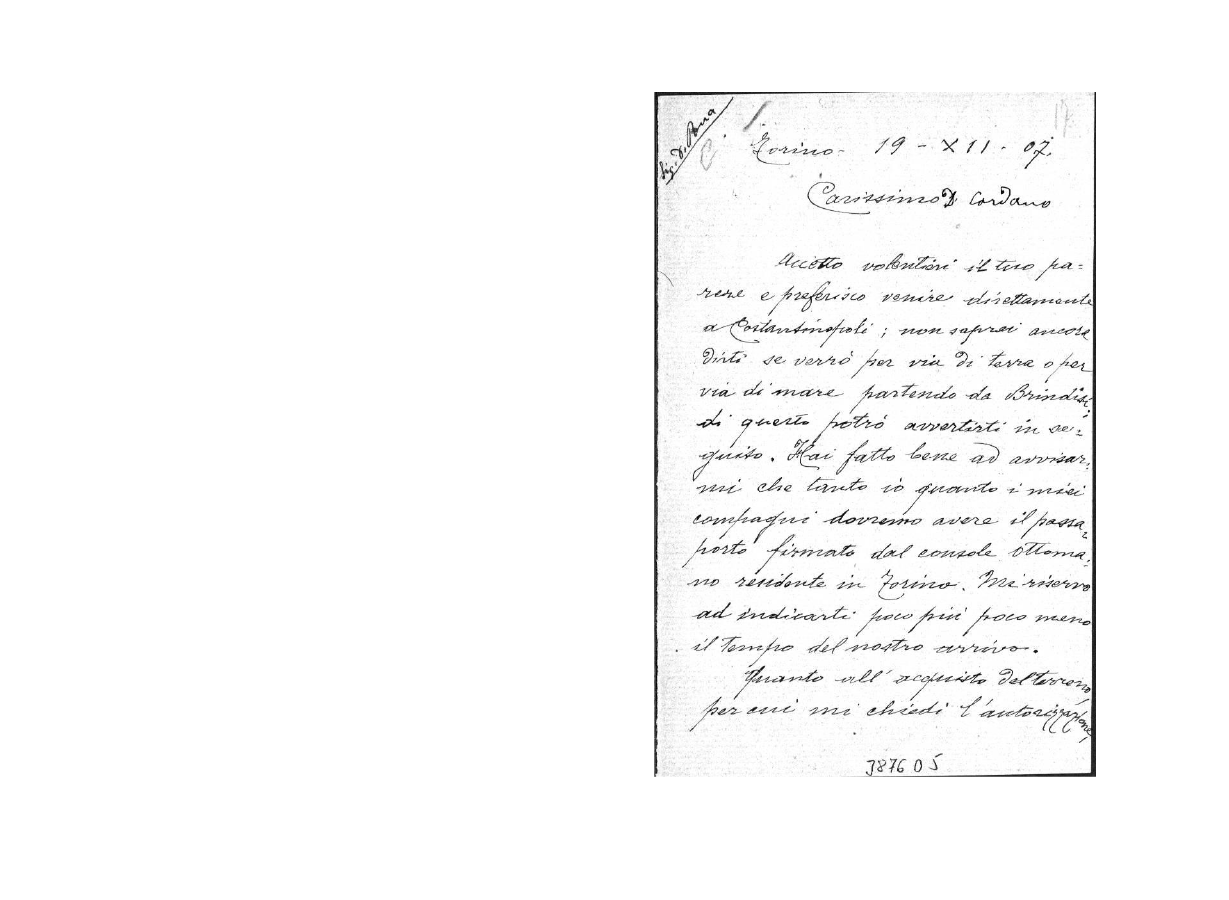 Sig. D. Bona
17
C
Torino - 19 - XII - 07.
Carissimo D. Cordano
Accetto volentieri il tuo pa=
rere e preferisco venire direttamente
a Costantinopoli ; non saprei ancora
dirti se verrò per via di terra o per
via di mare partendo da Brindisi;
di questo potrò avvertirti in se=
guito. Hai fatto bene ad avvisar=
mi che tanto io quanto i miei
compagni dovremo avere il passa=
porto firmato dal console ottoma=
no residente in Torino. Mi riservo
ad indicarti poco più poco meno
il tempo del nostro arrivo.
Quanto all' acquisto del terreno,
per cui mi chiedi l'autorizzazione,
3876 D 5